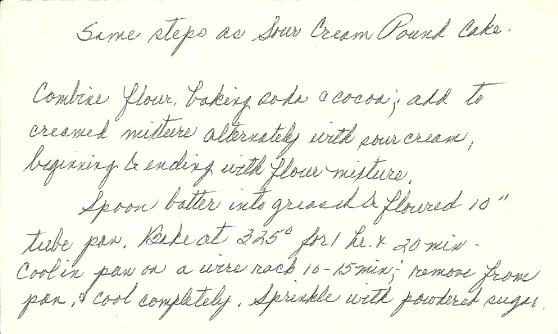 Same steps as Sour Cream Pound Cake.
Combine flour, baking soda & cocoa; add to
creamed mixture alternately with sour cream,
beginning & ending with flour mixture.
Spoon batter into greased & floured 10"
tube pan. Bake at 325° for 1 hr. & 20 min.
Cool in pan on a wire rack 10-15 min; remove from
pan, & cool completely. Sprinkle with powdered sugar.